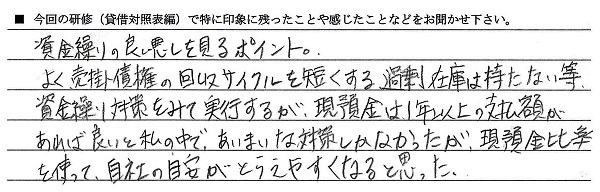 ■ 今回の研修（貸借対照表編）で特に印象に残ったことや感じたことなどをお聞かせ下さい。
資金繰りの良し悪しを見るポイント。
よく売掛債権の回収サイクルを短くする、過剰在庫は持たない等、
資金繰り対策をみて実行するが、現預金は1年以上の支払額が
あれば良いと私の中で、あいまいな対策しかなかったが、現預金比率
を使って、自社の目安がとらえやすくなると思った。